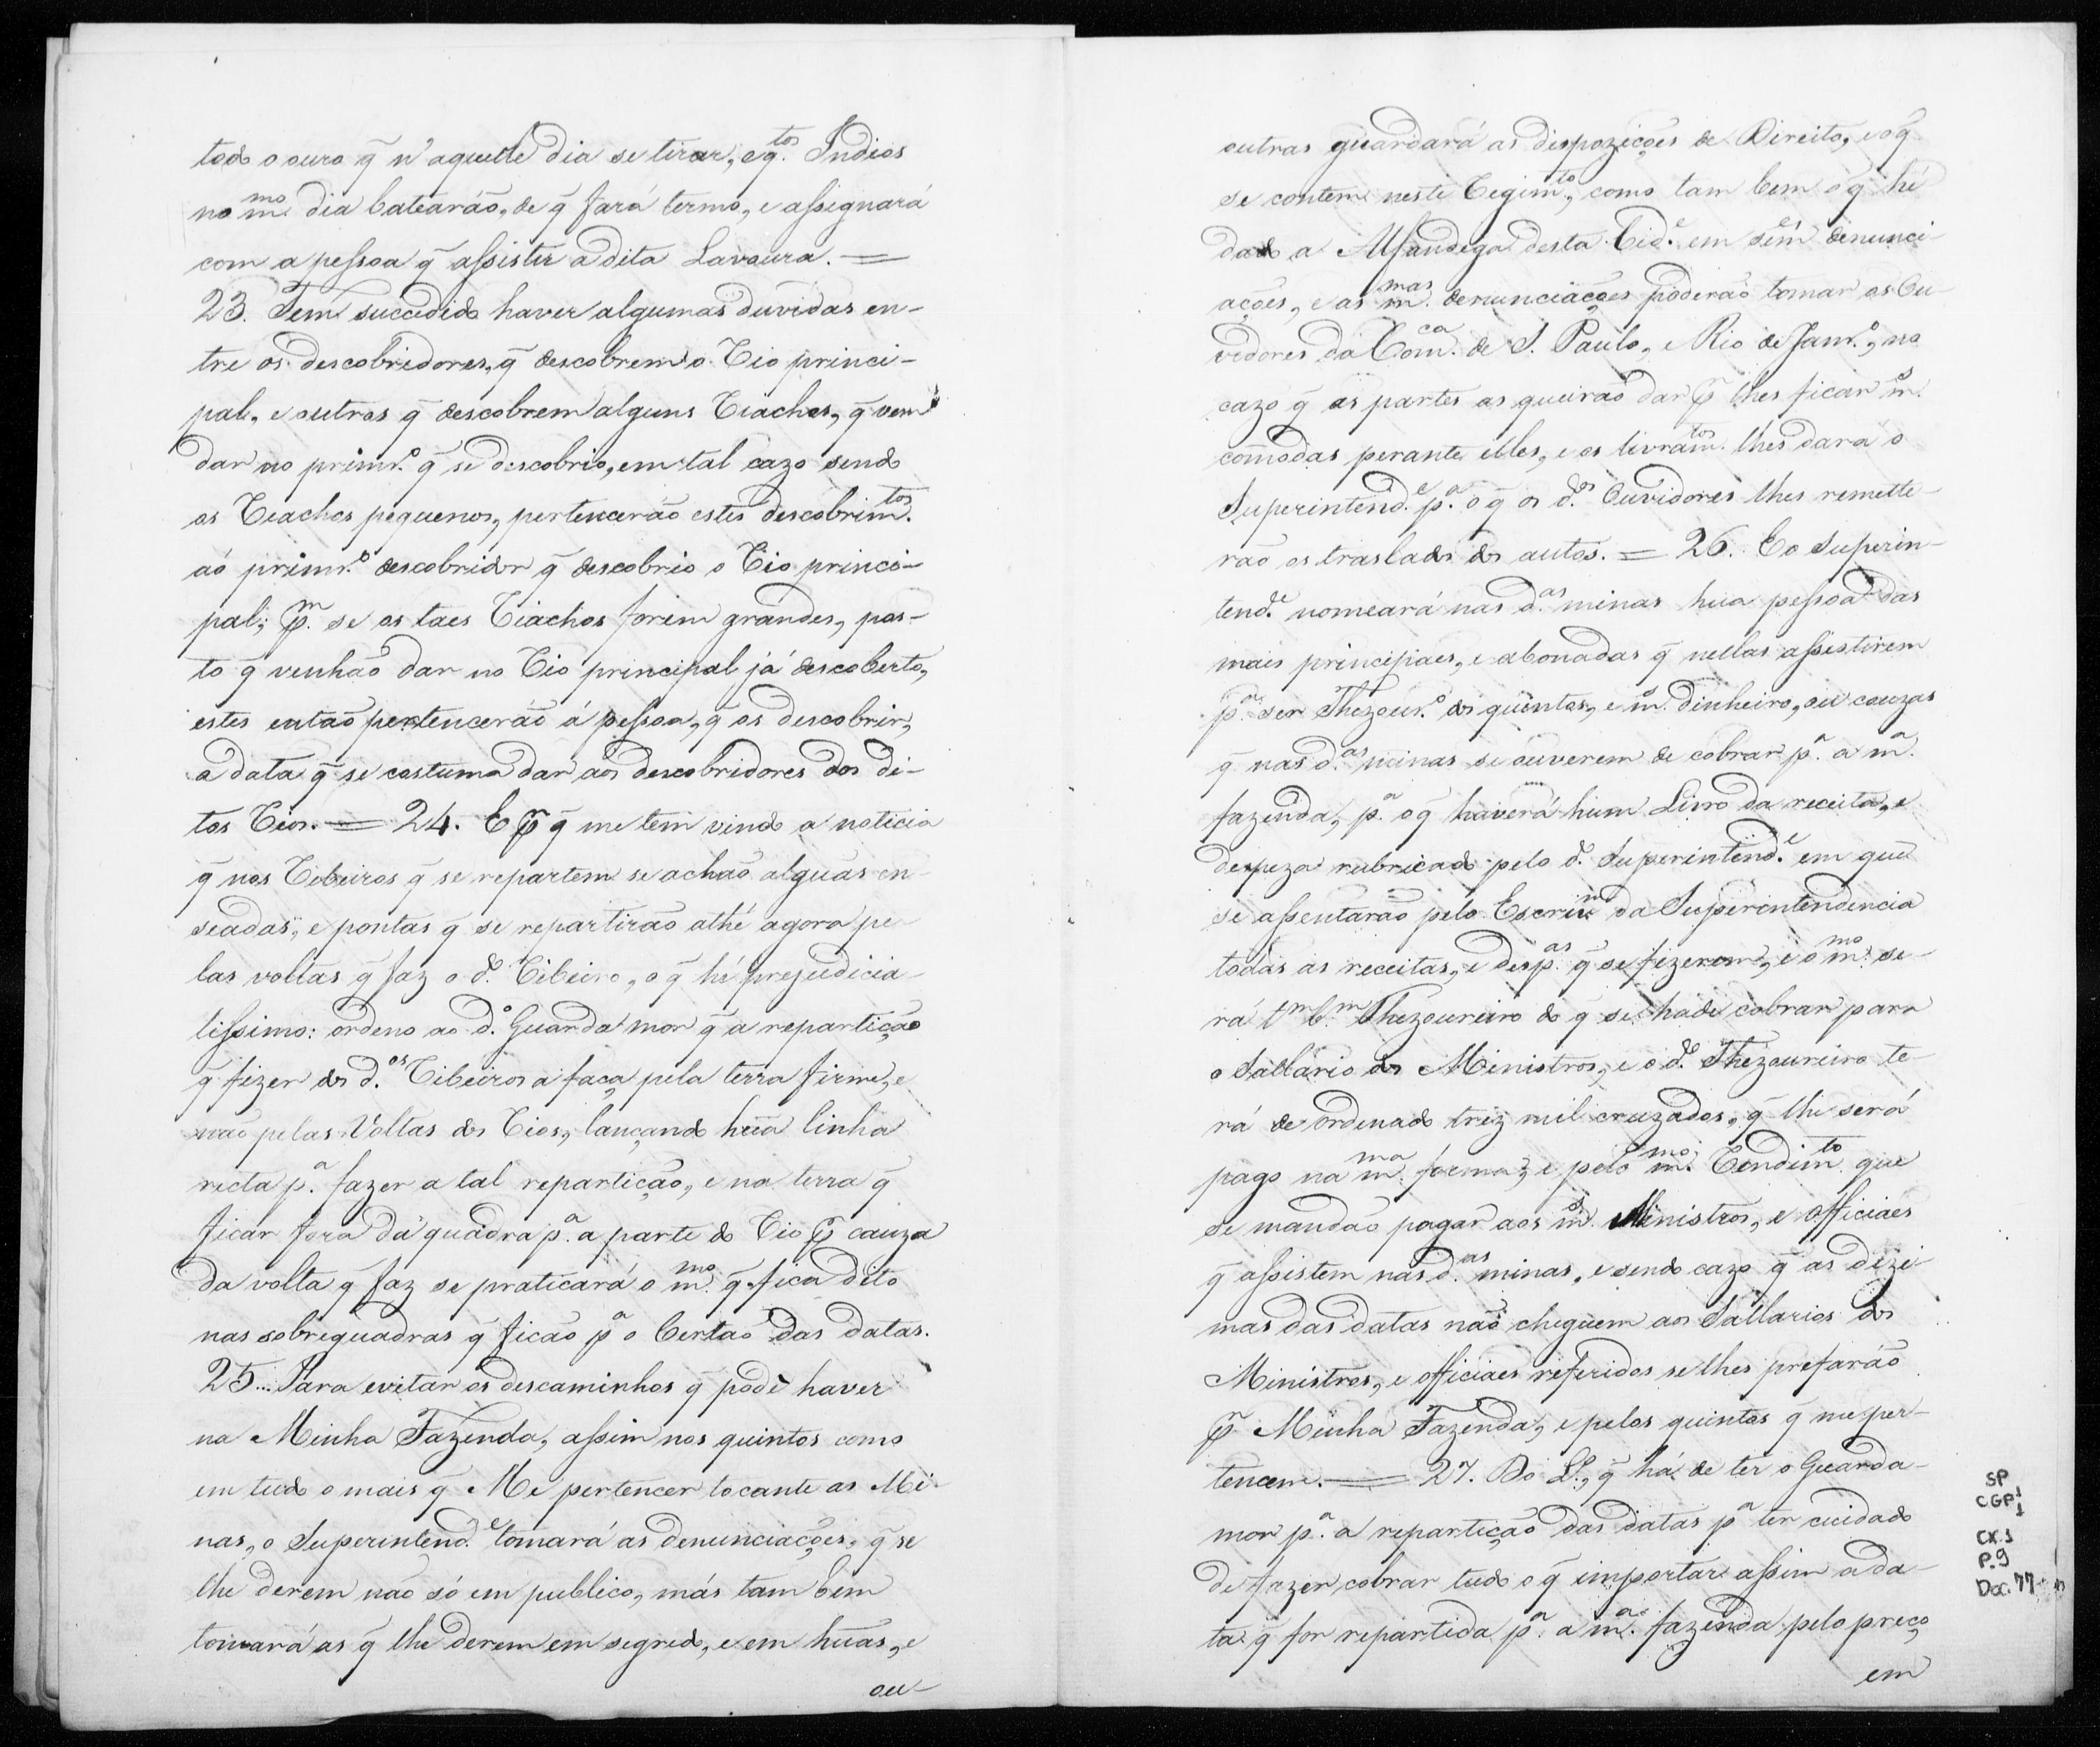 todo o ouro q̃ n'aquelle dia se tirar, e q.tos Indios
no m.mo dia batearão, de q̃ fará termo, e assignará
com a pessoa q̃ assistir a dita Lavoura. =
23. Tem succedido haver algumas duvidas en-
tre os descobridores, q̃ descobrem o Rio princi-
pal, e outros q̃ descobrem alguns Riachos, q̃ vem
dar no primr.o q̃ se descobrio, em tal cazo sendo
os Riachos pequenos, pertencerão estes descobrim.tos
aó primr.o descobridor q̃ descobrio o Rio princi-
pal; p.m se os taes Riachos forem grandes, pos-
to q̃ venhão dar no Rio principal já descoberto,
estes então pertencerão á pessoa, q̃ os descobrir,
a data q̃ se costuma dar aos descobridores dos di-
tos Rios. = 24. E p̃ q̃ me tem vindo a noticia
q̃ nos Ribeiros q̃ se repartem se achão alguãs en-
seadas, e pontas q̃ se repartirão athé agora pe-
las voltas q̃ faz o d.o Ribeiro, o q̃ hé prejudicia-
lissimo: ordeno ao d.o Guarda mor q̃ a repartição
q̃ fizer dos d.os Ribeiros a faça pela terra firme, e
não pelas Voltas dos Rios, lançando huã linha
recta p.a fazer a tal repartição, e na terra q̃
ficar fora da quadra p.a a parte do Rio p̃ cauza
da volta q̃ faz se praticará o m.mo q̃ fica dito
nas sobrequadras q̃ ficão p.a o Certão das datas.
25. Para evitar os descaminhos q̃ pode haver
na Minha Fazenda, assim nos quintos como
em tudo o mais q̃ Me pertencer tocante as Mi-
nas, o Superintend.e tomará as denunciações, q̃ se
lhe derem não só em publico, más tam bem
tomará as q̃ lhe derem em segredo, e em huãs, e
ou-
outras guardará as dispozições de Direito, e o q̃
se contem neste Regim.to, como tam bem o q̃ hé
dado a Alfandega desta Cid.e em sem.e denunci-
ações, e as m.mas denunciações poderão tomar os Ou-
vidores da Com.ca de S. Paulo, e Rio de Janr.o, no
cazo q̃ as partes as queirão dar p̃ lhes ficar m.s
cõmodas perante elles, e os livram.tos lhes dará o
Superintend.e p.a o q̃ os d.os Ouvidores lhes remette-
rão os traslados dos autos. = 26. E o Superin-
tend.e nomeará nas d.as minas hua pessoa das
mais principaes, e abonadas q̃ nellas assistirem
p.a ser Thezour.o dos quintos, e m.s dinheiro, ou couzas
q̃ nas d.as minas se ouverem de cobrar p.a a m.a
fazenda, p.a o q̃ haverá hum Livro da receita, e
despeza rubricado pelo d.o Superintend.e em que
se assentarão pelo Escriv.m da Superintendencia
todas as receitas, e desp.as q̃ se fizerem, e o m.mo se-
rá t.m b.m Thezoureiro do q̃ se hade cobrar para
o Sallario dos Ministros, e o d.o Thezoureiro te-
rá de ordenado trez mil cruzados, q̃ lhe será
pago na m.ma forma, e pelo m.mo Rendim.to que
se mandão pagar aos m.s Ministros, e officiaes
q̃ assistem nas d.as minas, e sendo cazo q̃ as dizi-
mas das datas não cheguem aos Sallarios dos
Ministros, e officiaes referidos se lhes prefarão
p.r Minha Fazenda, e pelos quintos q̃ me per-
tencem. = 27. Do L.o, q̃ há de ter o Guarda-
mor p.a a repartição das datas p.a ter cuidado
de fazer cobrar tudo o q̃ importar assim a da-
ta q̃ for repartida p.a a m.a fazenda pelo preço
em
SP
CGP1
1
CX.1
P.9
Doc. 77